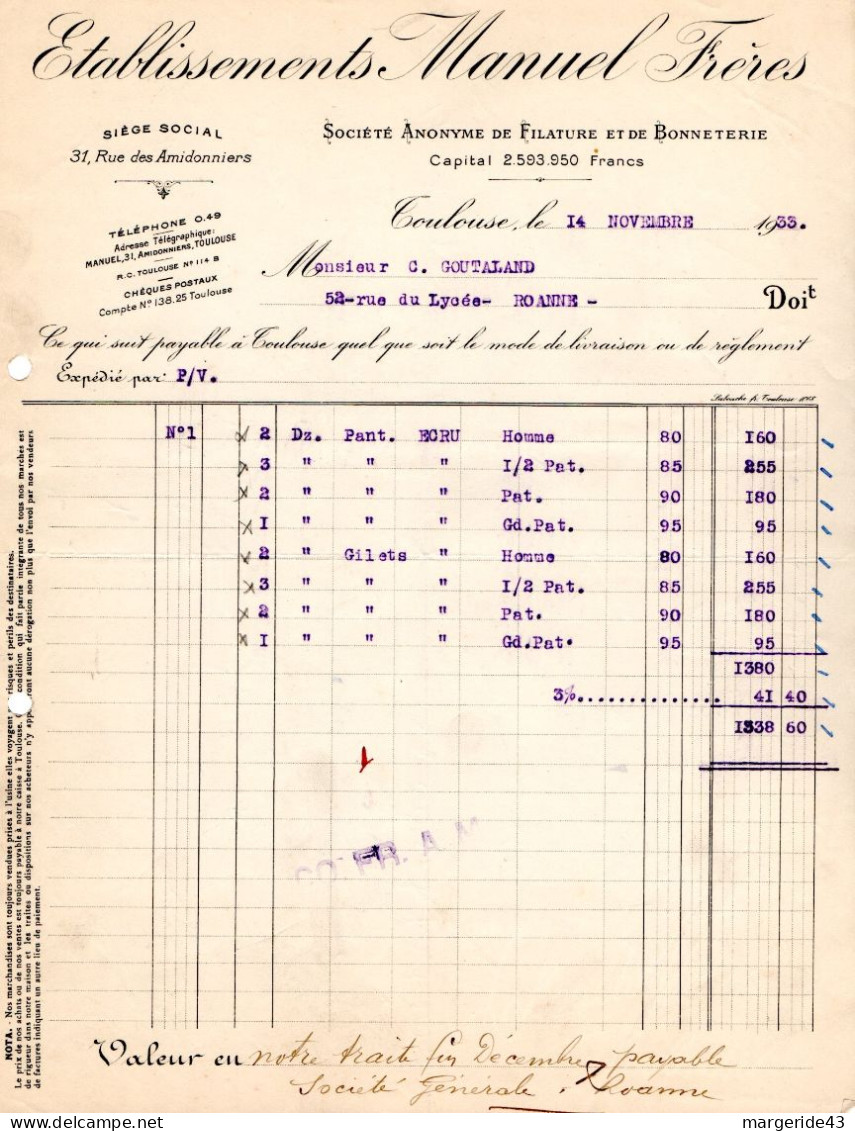 Etablissements Manuel Frères
SIÈGE SOCIAL
31, Rue des Amidonniers
SOCIÉTÉ ANONYME DE FILATURE ET DE BONNETERIE
Capital 2.593.950 Francs
TÉLÉPHONE 0.49
Adresse Télégraphique:
MANUEL, 31, AMIDONNIERS, TOULOUSE
R.C. TOULOUSE Nº 114 B
CHÈQUES POSTAUX
Compte Nº 138.25 Toulouse
Toulouse, le 14 NOVEMBRE 1933.
Monsieur C. GOUTALAND
52-rue du Lycée- ROANNE -
Doit
Ce qui suit payable à Toulouse quel que soit le mode de livraison ou de règlement
Expédié par: P/V.
N°1 2 Dz. Pant. ECRU Homme 80 160
3 " " " 1/2 Pat. 85 255
2 " " " Pat. 90 180
1 " " " Gd.Pat. 95 95
2 " Gilets " Homme 80 160
3 " " " 1/2 Pat. 85 255
2 " " " Pat. 90 180
1 " " " Gd.Pat. 95 95
1380
3%.............. 41 40
1338 60
FR. A. M
Valeur en notre traite fin Décembre payable
Société Générale, Roanne
NOTA. - Nos marchandises sont toujours vendues prises à l'usine elles voyagent risques et perils des destinataires.
Le prix de nos achats ou de nos ventes est toujours payable à notre caisse à Toulouse. condition qui fait partie intégrante de tous nos marches est
de rigueur dans notre maison et les traites ou dispositions sur nos acheteurs n'y aucune dérogation non plus que l'envoi par nos vendeurs
de factures indiquant un autre lieu de paiement.
margeride43